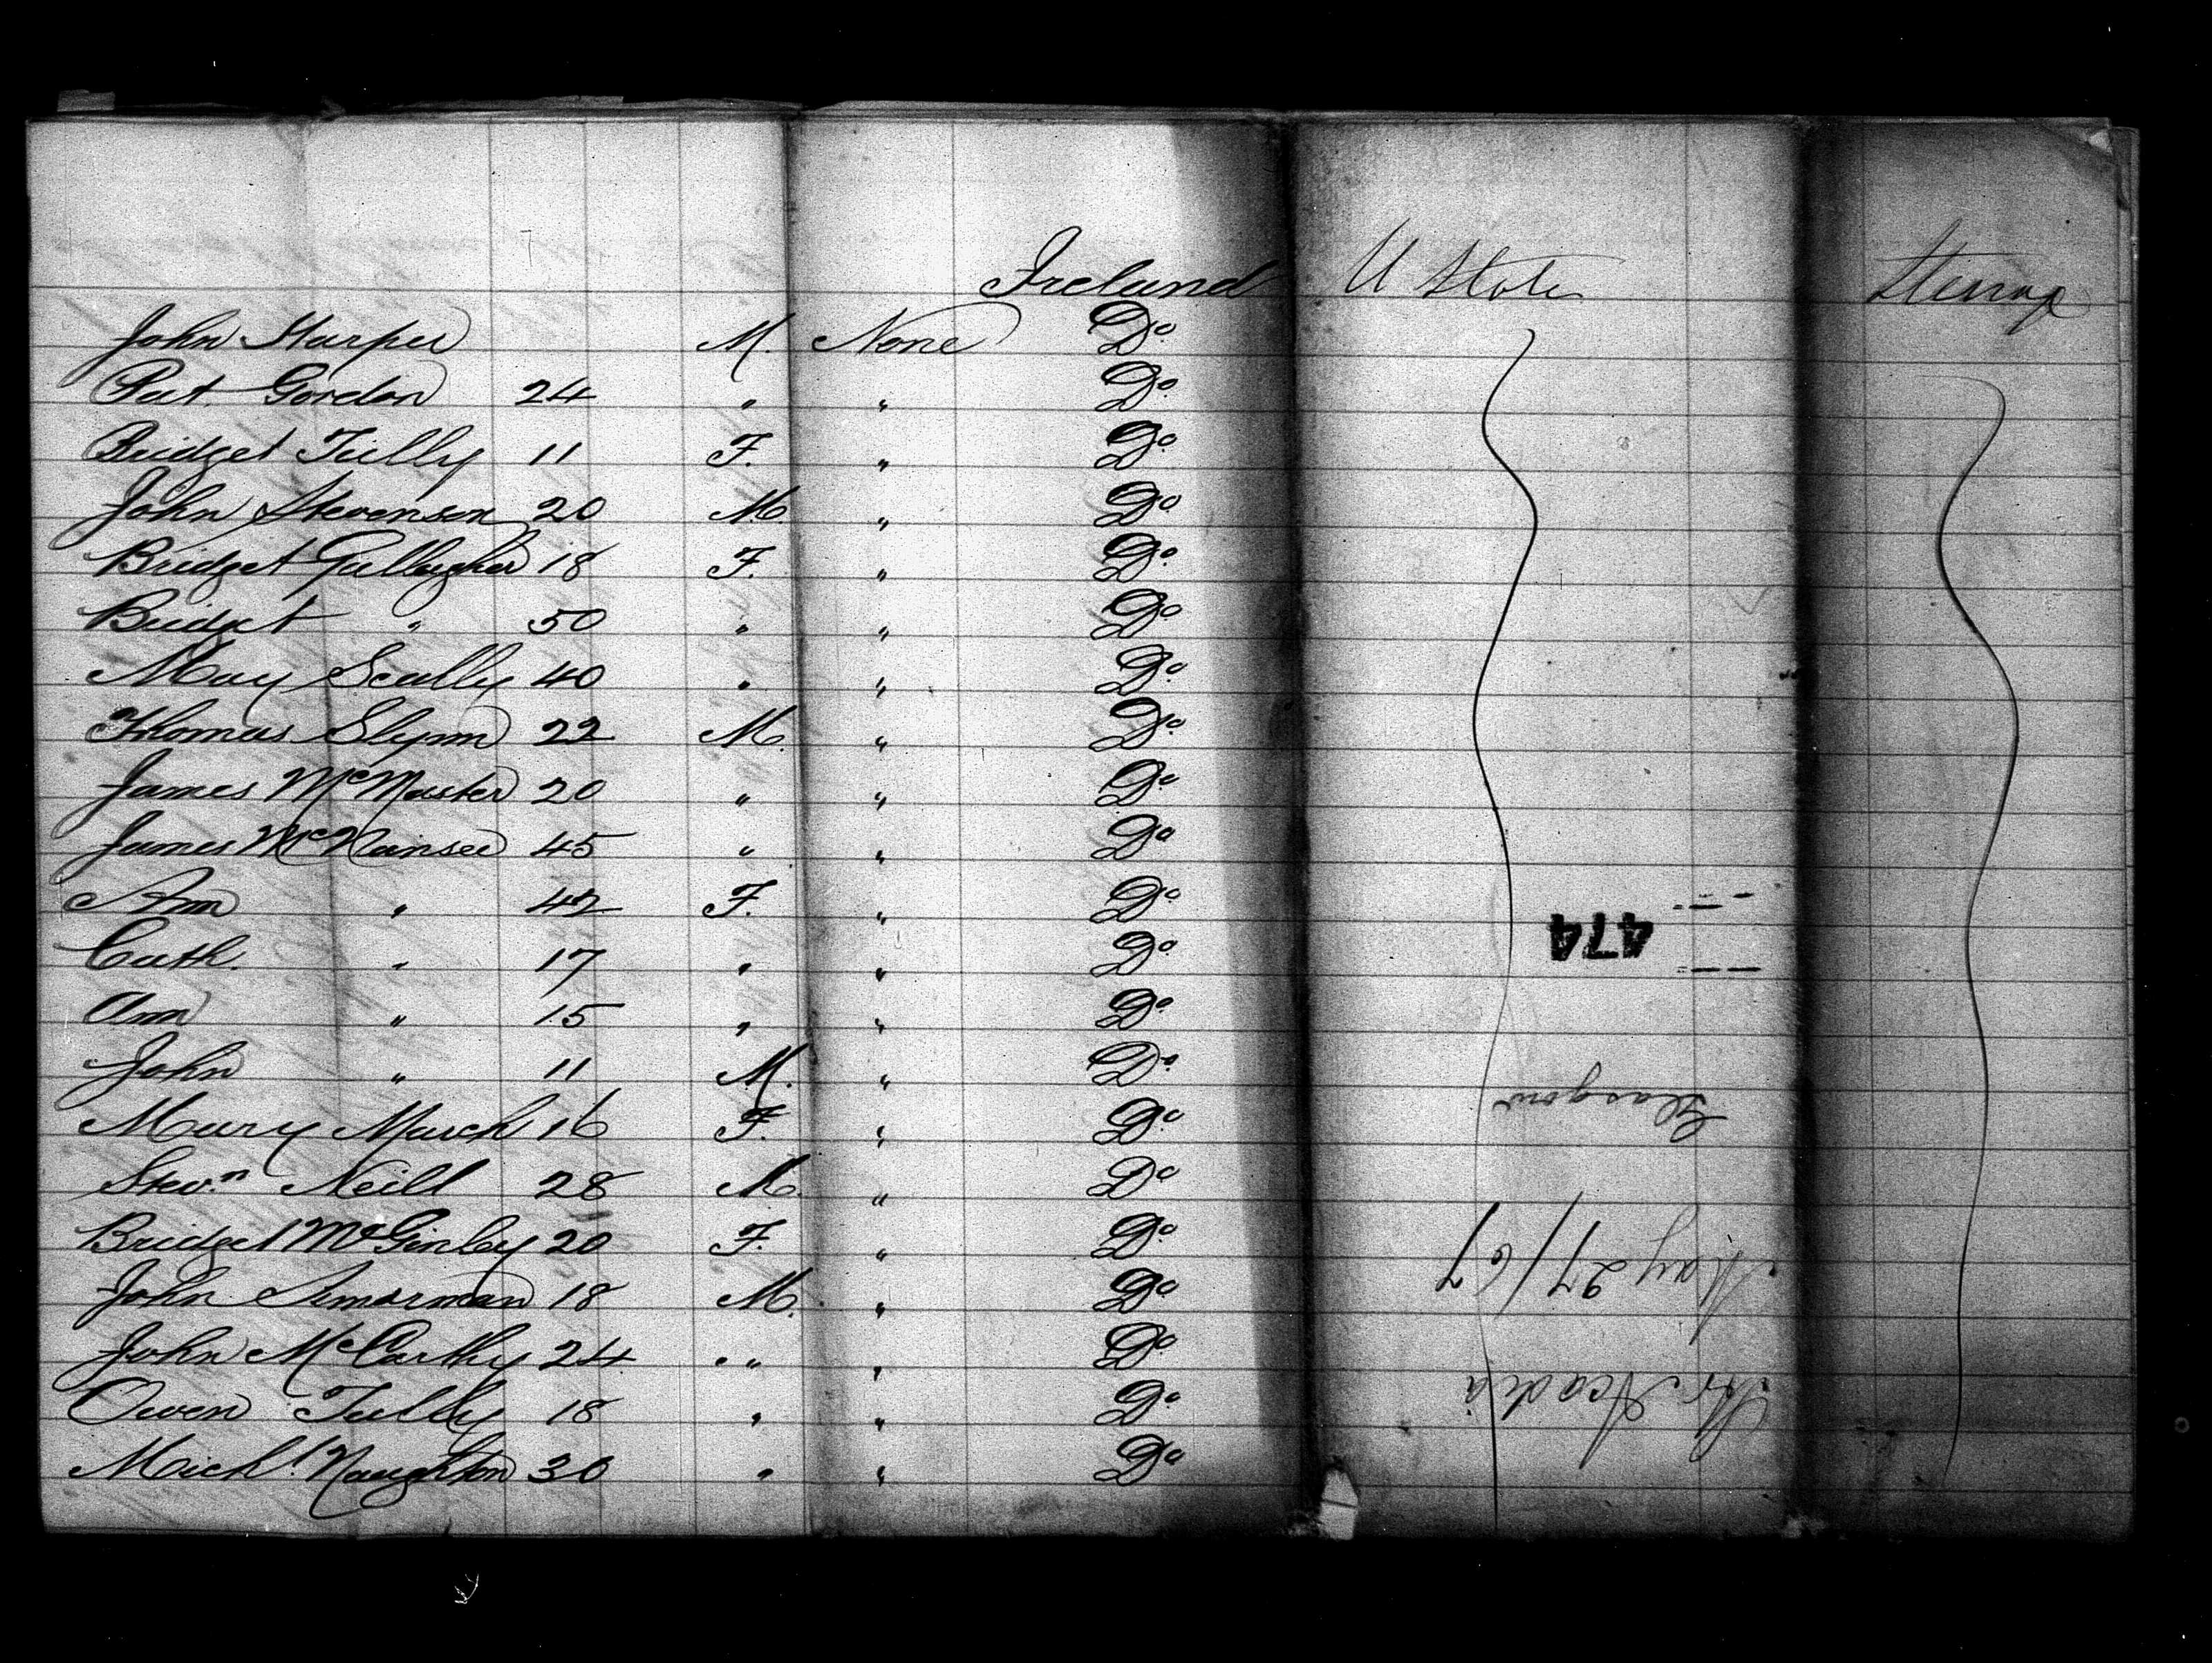 Ireland U States Steerage
John Harper M. None Do
Pat. Gordon 24 " " Do
Bridget Tully 11 F. " Do
John Stevenson 20 M. " Do
Bridget Gallagher 18 F. " Do
Bridget " 50 " " Do
Mary Scally 40 " " Do
Thomas Slynn 22 M. " Do
James McMaster 20 " " Do
James 45 " " Do
Ann " 42 F. " Do
Cath. " 17 " " Do
Ann " 15 " " Do
John " 11 M. " Do
Mary March 16 F. " Do
Stevn. Neill 28 M. " Do
Bridget McGinley 20 F. " Do
John 18 M. " Do
John McCarthy 24 " " Do
Owen Tully 18 " " Do
Michl. Naughton 30 " " Do
474
Glasgow
May 27/67
Str Acadia